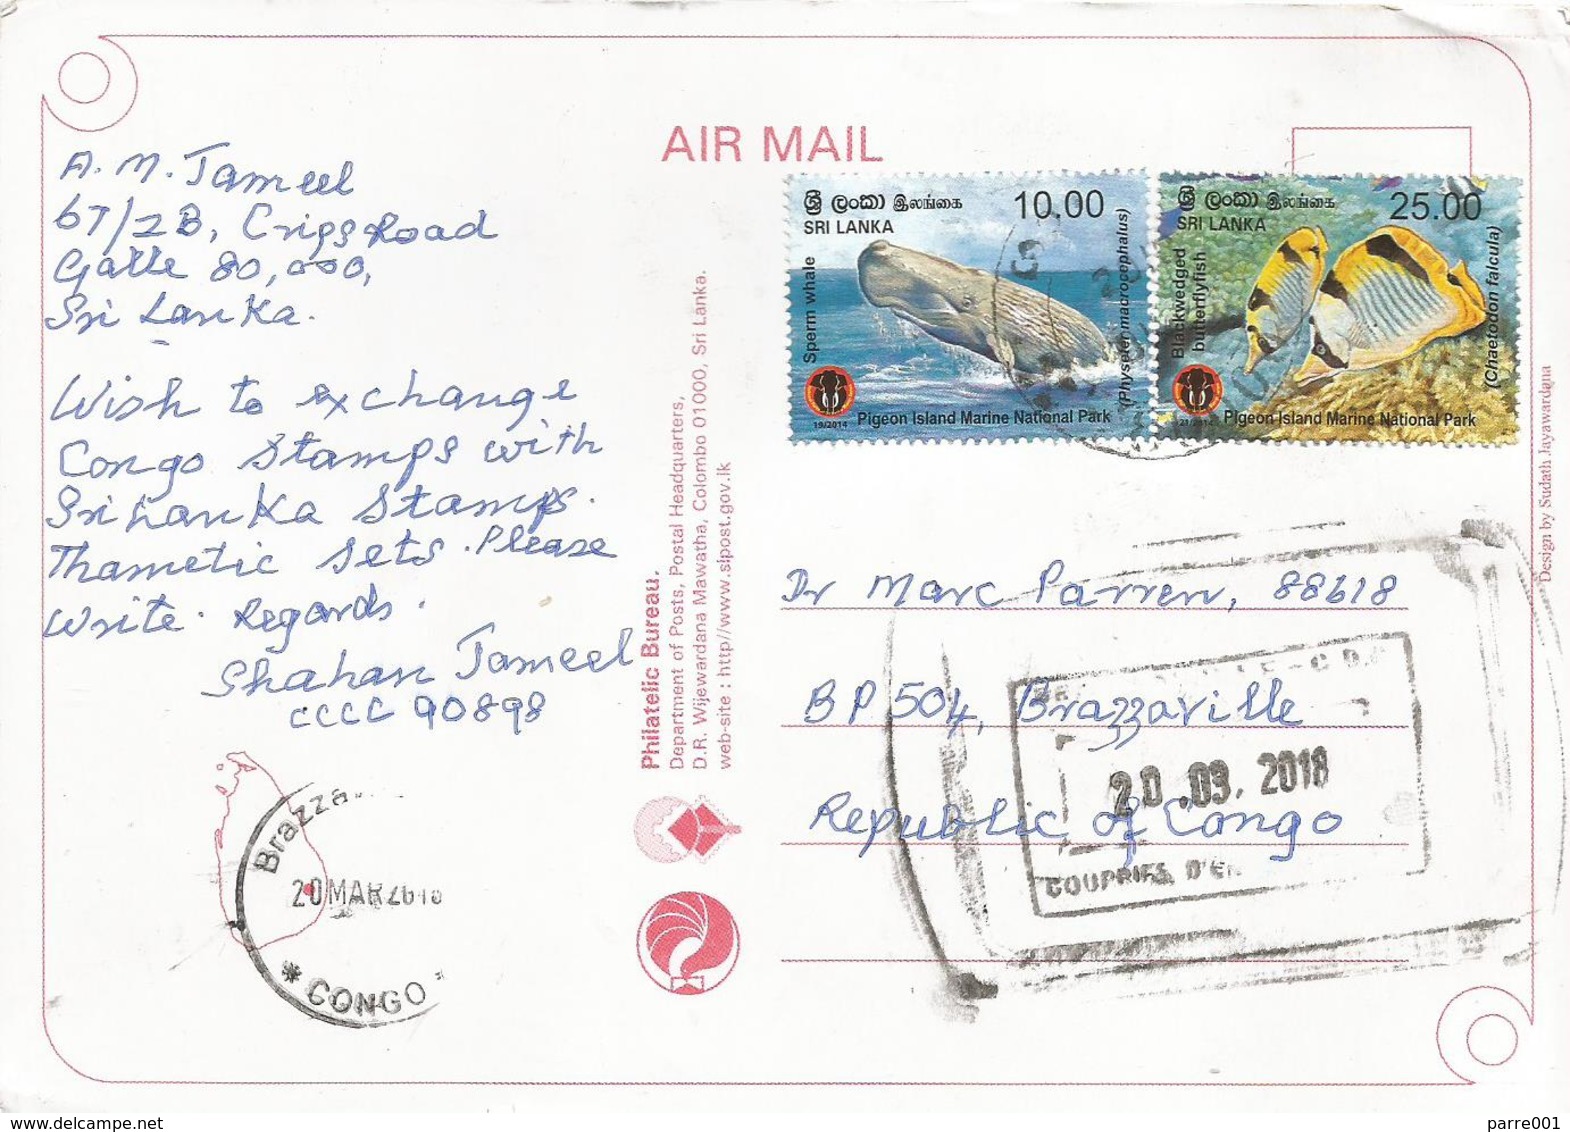 AIR MAIL
A. M. Jameel
67/2B, Crips Road
Galle 80,000,
Sri Lanka.
Wish to exchange
Congo Stamps with
Sri Lanka Stamps.
Thametic Sets. Please
Write. Regards.
Shahan Jameel
CCCC 90898
Brazza
20 MAR 2018
* CONGO *
Philatelic Bureau.
Department of Posts, Postal Headquarters,
D.R. Wijewardana Mawatha, Colombo 01000, Sri Lanka.
web-site : http//www.slpost.gov.lk
ශ්‍රී ලංකා இலங்கை 10.00
SRI LANKA
Sperm whale
(Physeter macrocephalus)
19/2014
Pigeon Island Marine National Park
ශ්‍රී ලංකා இலங்கை 25.00
SRI LANKA
Blackwedged
butterflyfish
(Chaetodon falcula)
21/2014
Pigeon Island Marine National Park
Dr Marc Parren, 88618
BP 504, Brazzaville
Republic of Congo
20.03.2018
Design by Sudath Jayawardana
parre001